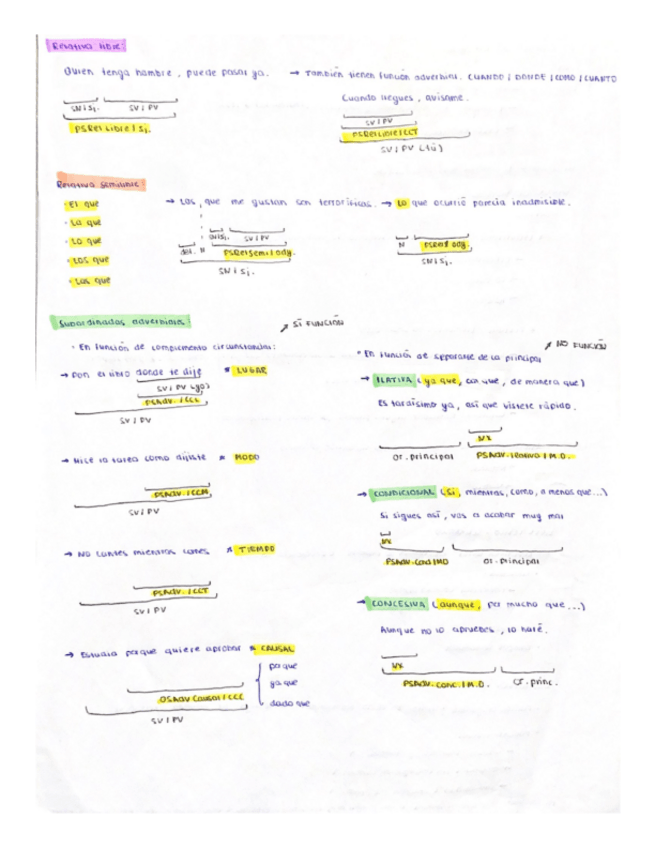 Relativa libre:
Quien tenga hambre, puede pasar ya. → También tienen función adverbial. CUANDO / DONDE / COMO / CUANTO
Cuando llegues, avísame.
SN/Sj. SV/PV
PSRel Libre/Sj.
SV/PV
PSRelLibre/CCT
SV/PV (tú)
Relativa Semilibre:
· El que
· La que
· Lo que
· Los que
· Las que
→ Las, que me gustan son terroríficas. → Lo que ocurrió parecía inadmisible.
SN/Sj. SV/PV
det. N PSRelSemil/adj.
SN/Sj.
N PSRel/adj.
SN/Sj.
Subordinadas adverbiales:
↗ SÍ FUNCIÓN
· En función de complemento circunstancial:
→ Pon el libro donde te dije * LUGAR
SV/PV (yo)
PSAdv./CCL
SV/PV
→ Hice la tarea como dijiste * MODO
PSAdv./CCM
SV/PV
→ No cuntes mientras comes * TIEMPO
PSAdv./CCT
SV/PV
→ Estudia porque quiere aprobar * CAUSAL
porque
ya que
dado que
OSAdv Causal/CCC
SV/PV
↗ NO FUNCIÓN
* En función de separarse de la principal
→ ILATIVA (ya que, con que, de manera que)
Es tardísimo ya, así que vístete rápido.
NX
or. principal PSAdv. ilativa/M.O.
→ CONDICIONAL (Si, mientras, como, a menos que...)
Si sigues así, vas a acabar muy mal
NX
PSAdv. Cond/MO or. principal
→ CONCESIVA (aunque, por mucho que...)
Aunque no lo apruebes, lo haré.
NX
PSAdv. conc./M.O. or. princ.